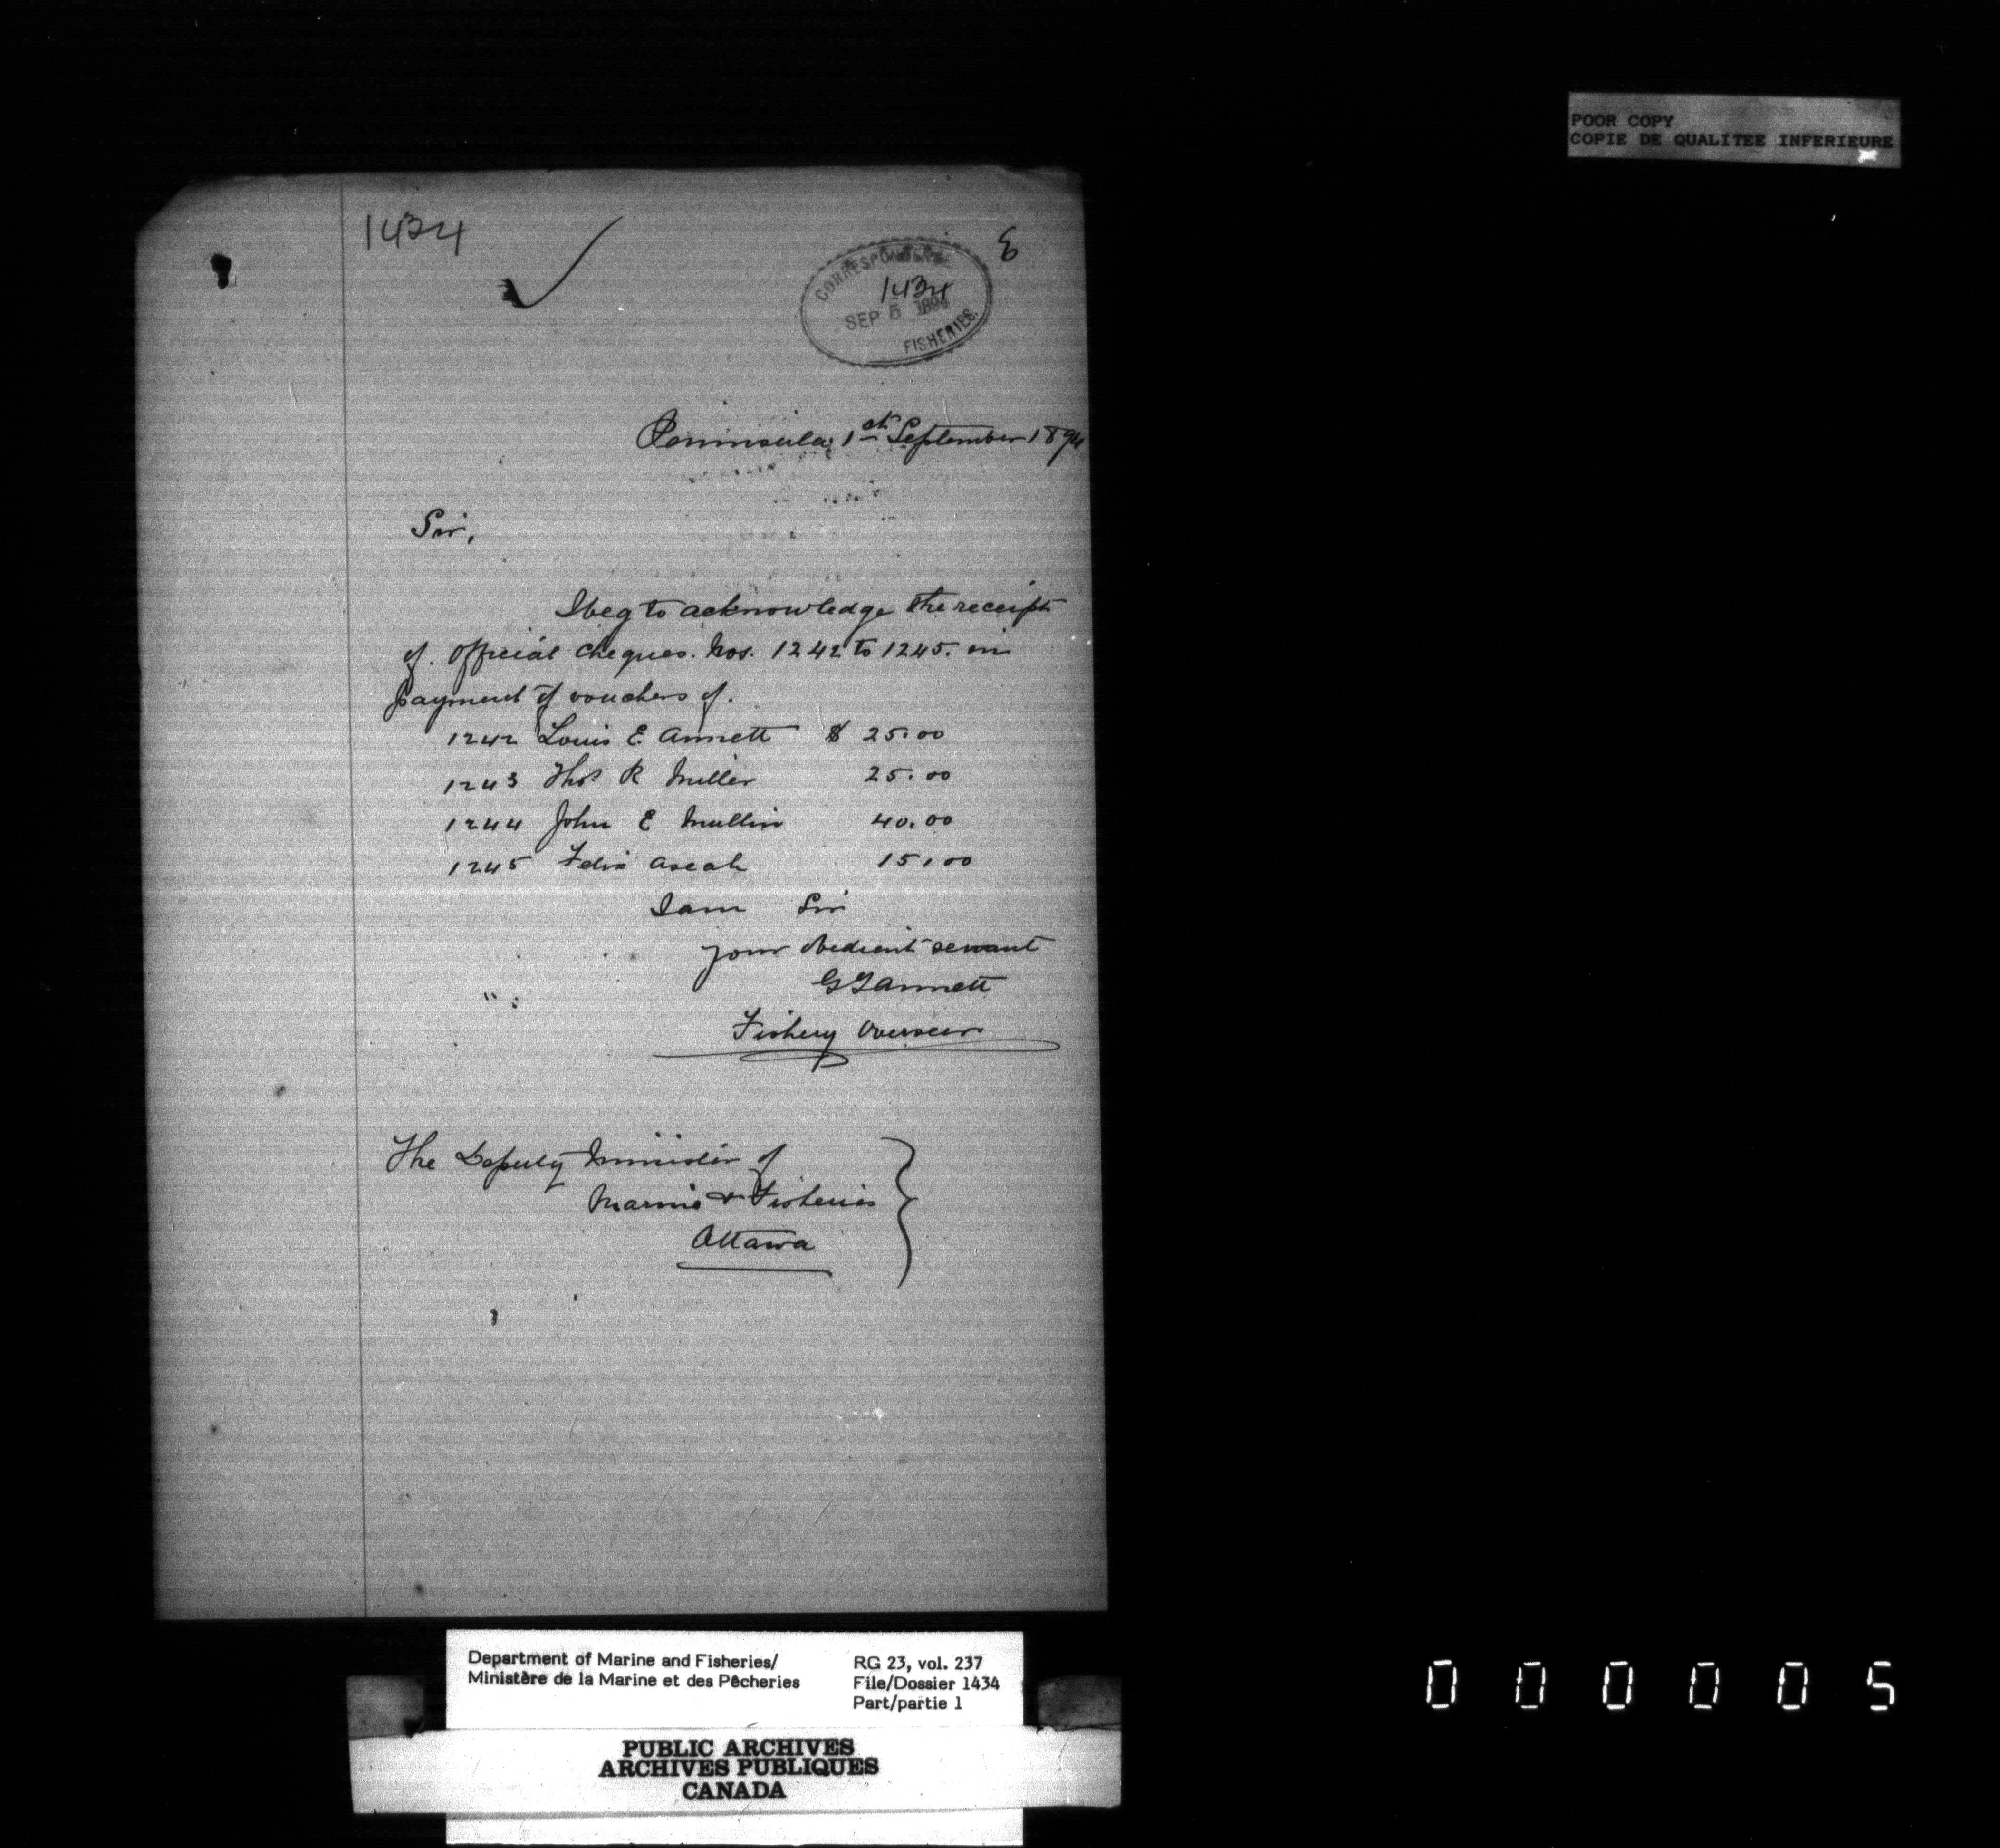 POOR COPY
COPIE DE QUALITEE INFERIEURE
1434
E
CORRESPONDENCE
1434
SEP 5 1894
FISHERIES.
Peninsula, 1st September 1894
Sir,
I beg to acknowledge the receipt
of. Official Cheques. Nos. 1242 to 1245. in
payment of vouchers of.
1242 Louis E. Annett $ 25.00
1243 Thos R Miller 25.00
1244 John E Mullin 40.00
1245 Felix Ascah 15.00
I am Sir
your obedient servant
Annett
Fishery Overseer
The Deputy Minister of
Marine & Fisheries
Ottawa
Department of Marine and Fisheries/
Ministère de la Marine et des Pêcheries
RG 23, vol. 237
File/Dossier 1434
Part/partie 1
PUBLIC ARCHIVES
ARCHIVES PUBLIQUES
CANADA
0 0 0 0 0 5